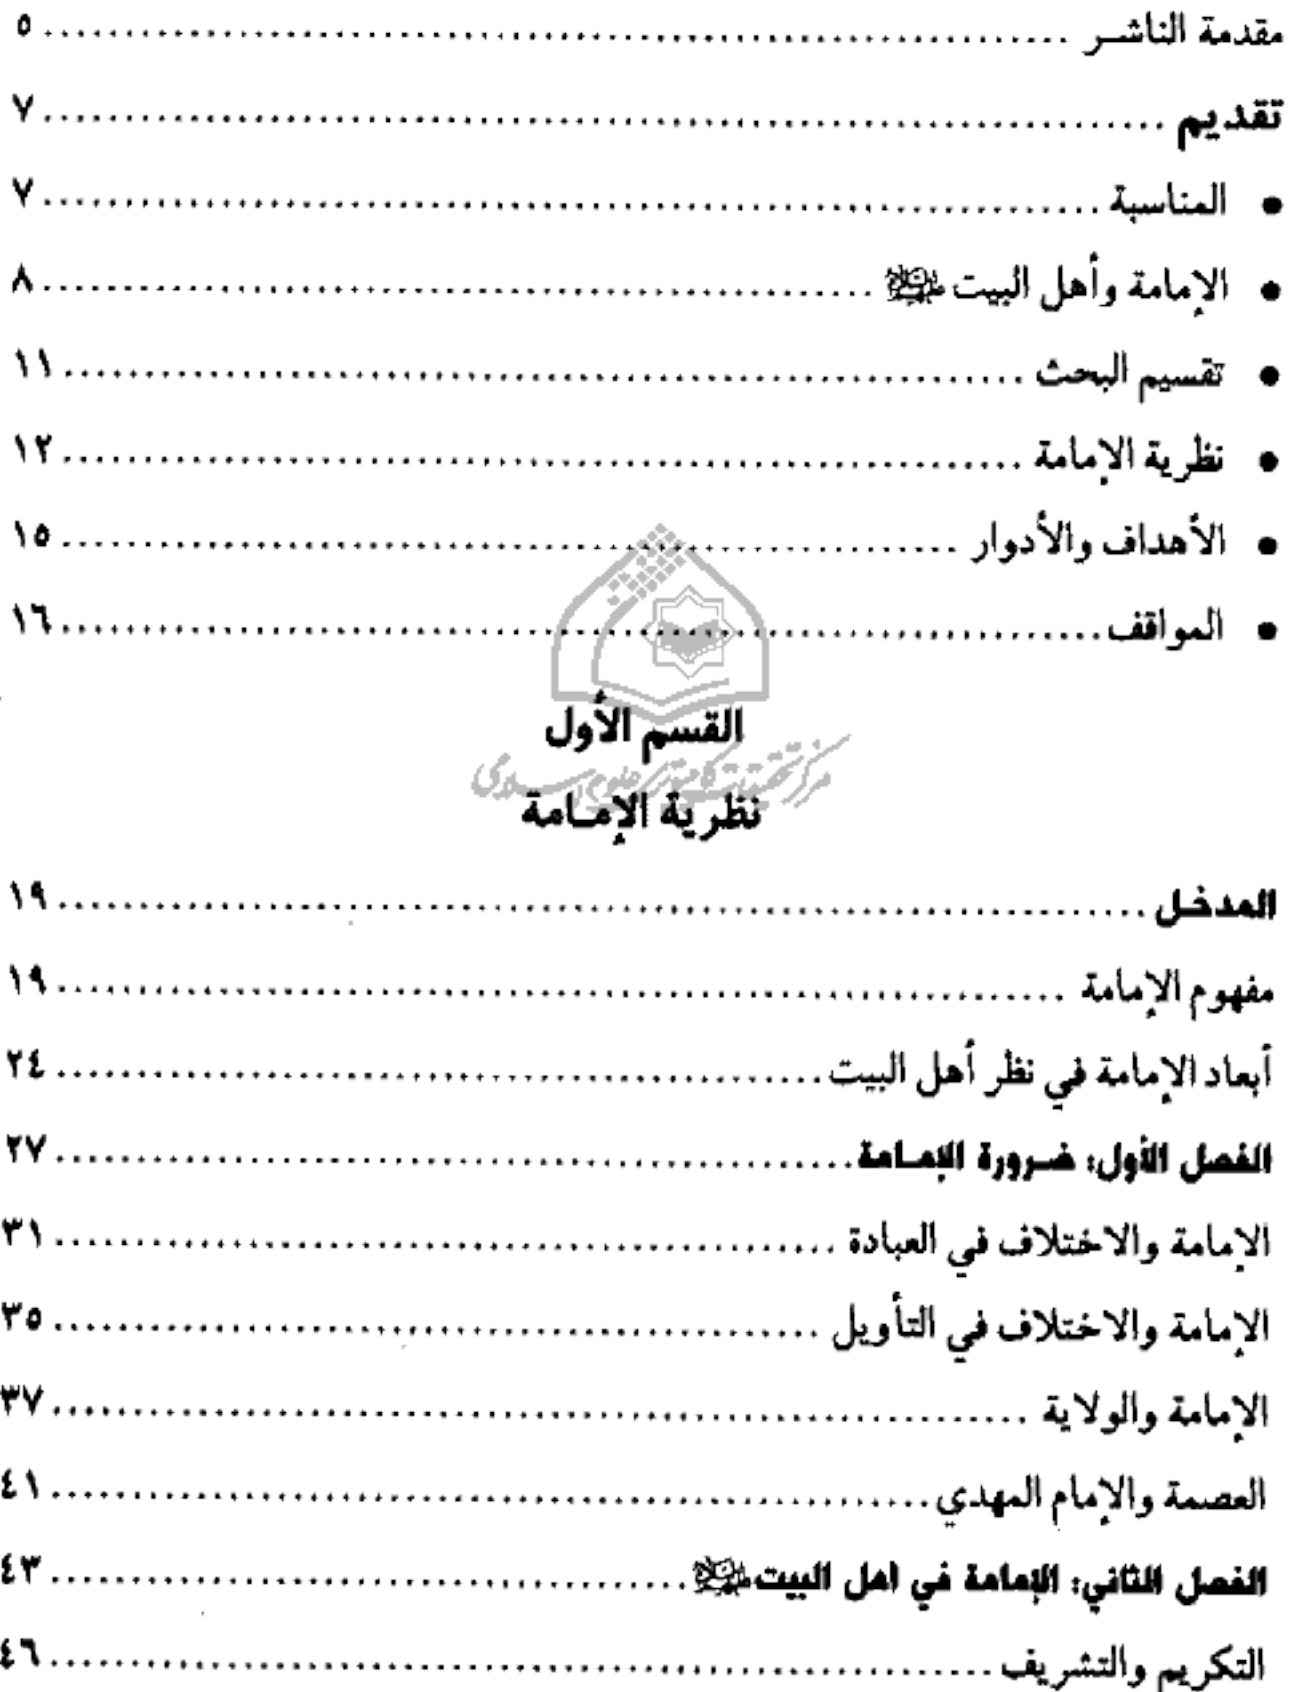 مقدمة الناشر ..... ٥
تقديم ..... ٧
● المناسبة ..... ٧
● الإمامة وأهل البيت عليهم السلام ..... ٨
● تقسيم البحث ..... ١١
● نظرية الإمامة ..... ١٢
● الأهداف والأدوار ..... ١٥
● المواقف ..... ١٦
القسم الأول
نظرية الإمامة
المدخل ..... ١٩
مفهوم الإمامة ..... ١٩
أبعاد الإمامة في نظر أهل البيت ..... ٢٤
الفصل الأول: ضرورة الإمامة ..... ٢٧
الإمامة والاختلاف في العبادة ..... ٣١
الإمامة والاختلاف في التأويل ..... ٣٥
الإمامة والولاية ..... ٣٧
العصمة والإمام المهدي ..... ٤١
الفصل الثاني: الإمامة في اهل البيت عليهم السلام ..... ٤٣
التكريم والتشريف ..... ٤٦